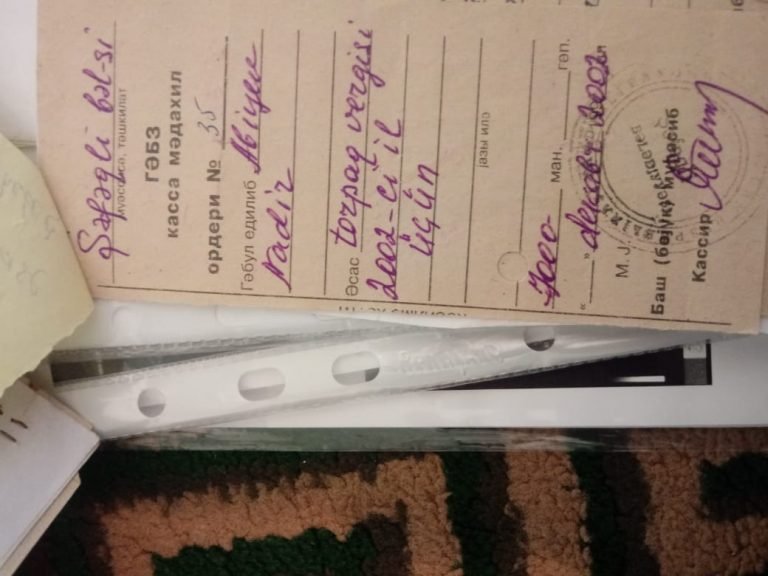 Şəfəqli bəl-si
мүәссисә, тәшкилат
ГӘБЗ
касса мәдахил
ордери № 35
Гәбул едилиб Abıyev
Nadir
Әсас torpaq vergisi
2002-ci il
üçün
јазы илә
ман. гәп.
" " dekabr 2002
М.Ј.
Баш (бөјүк) мүһасиб
Кассир